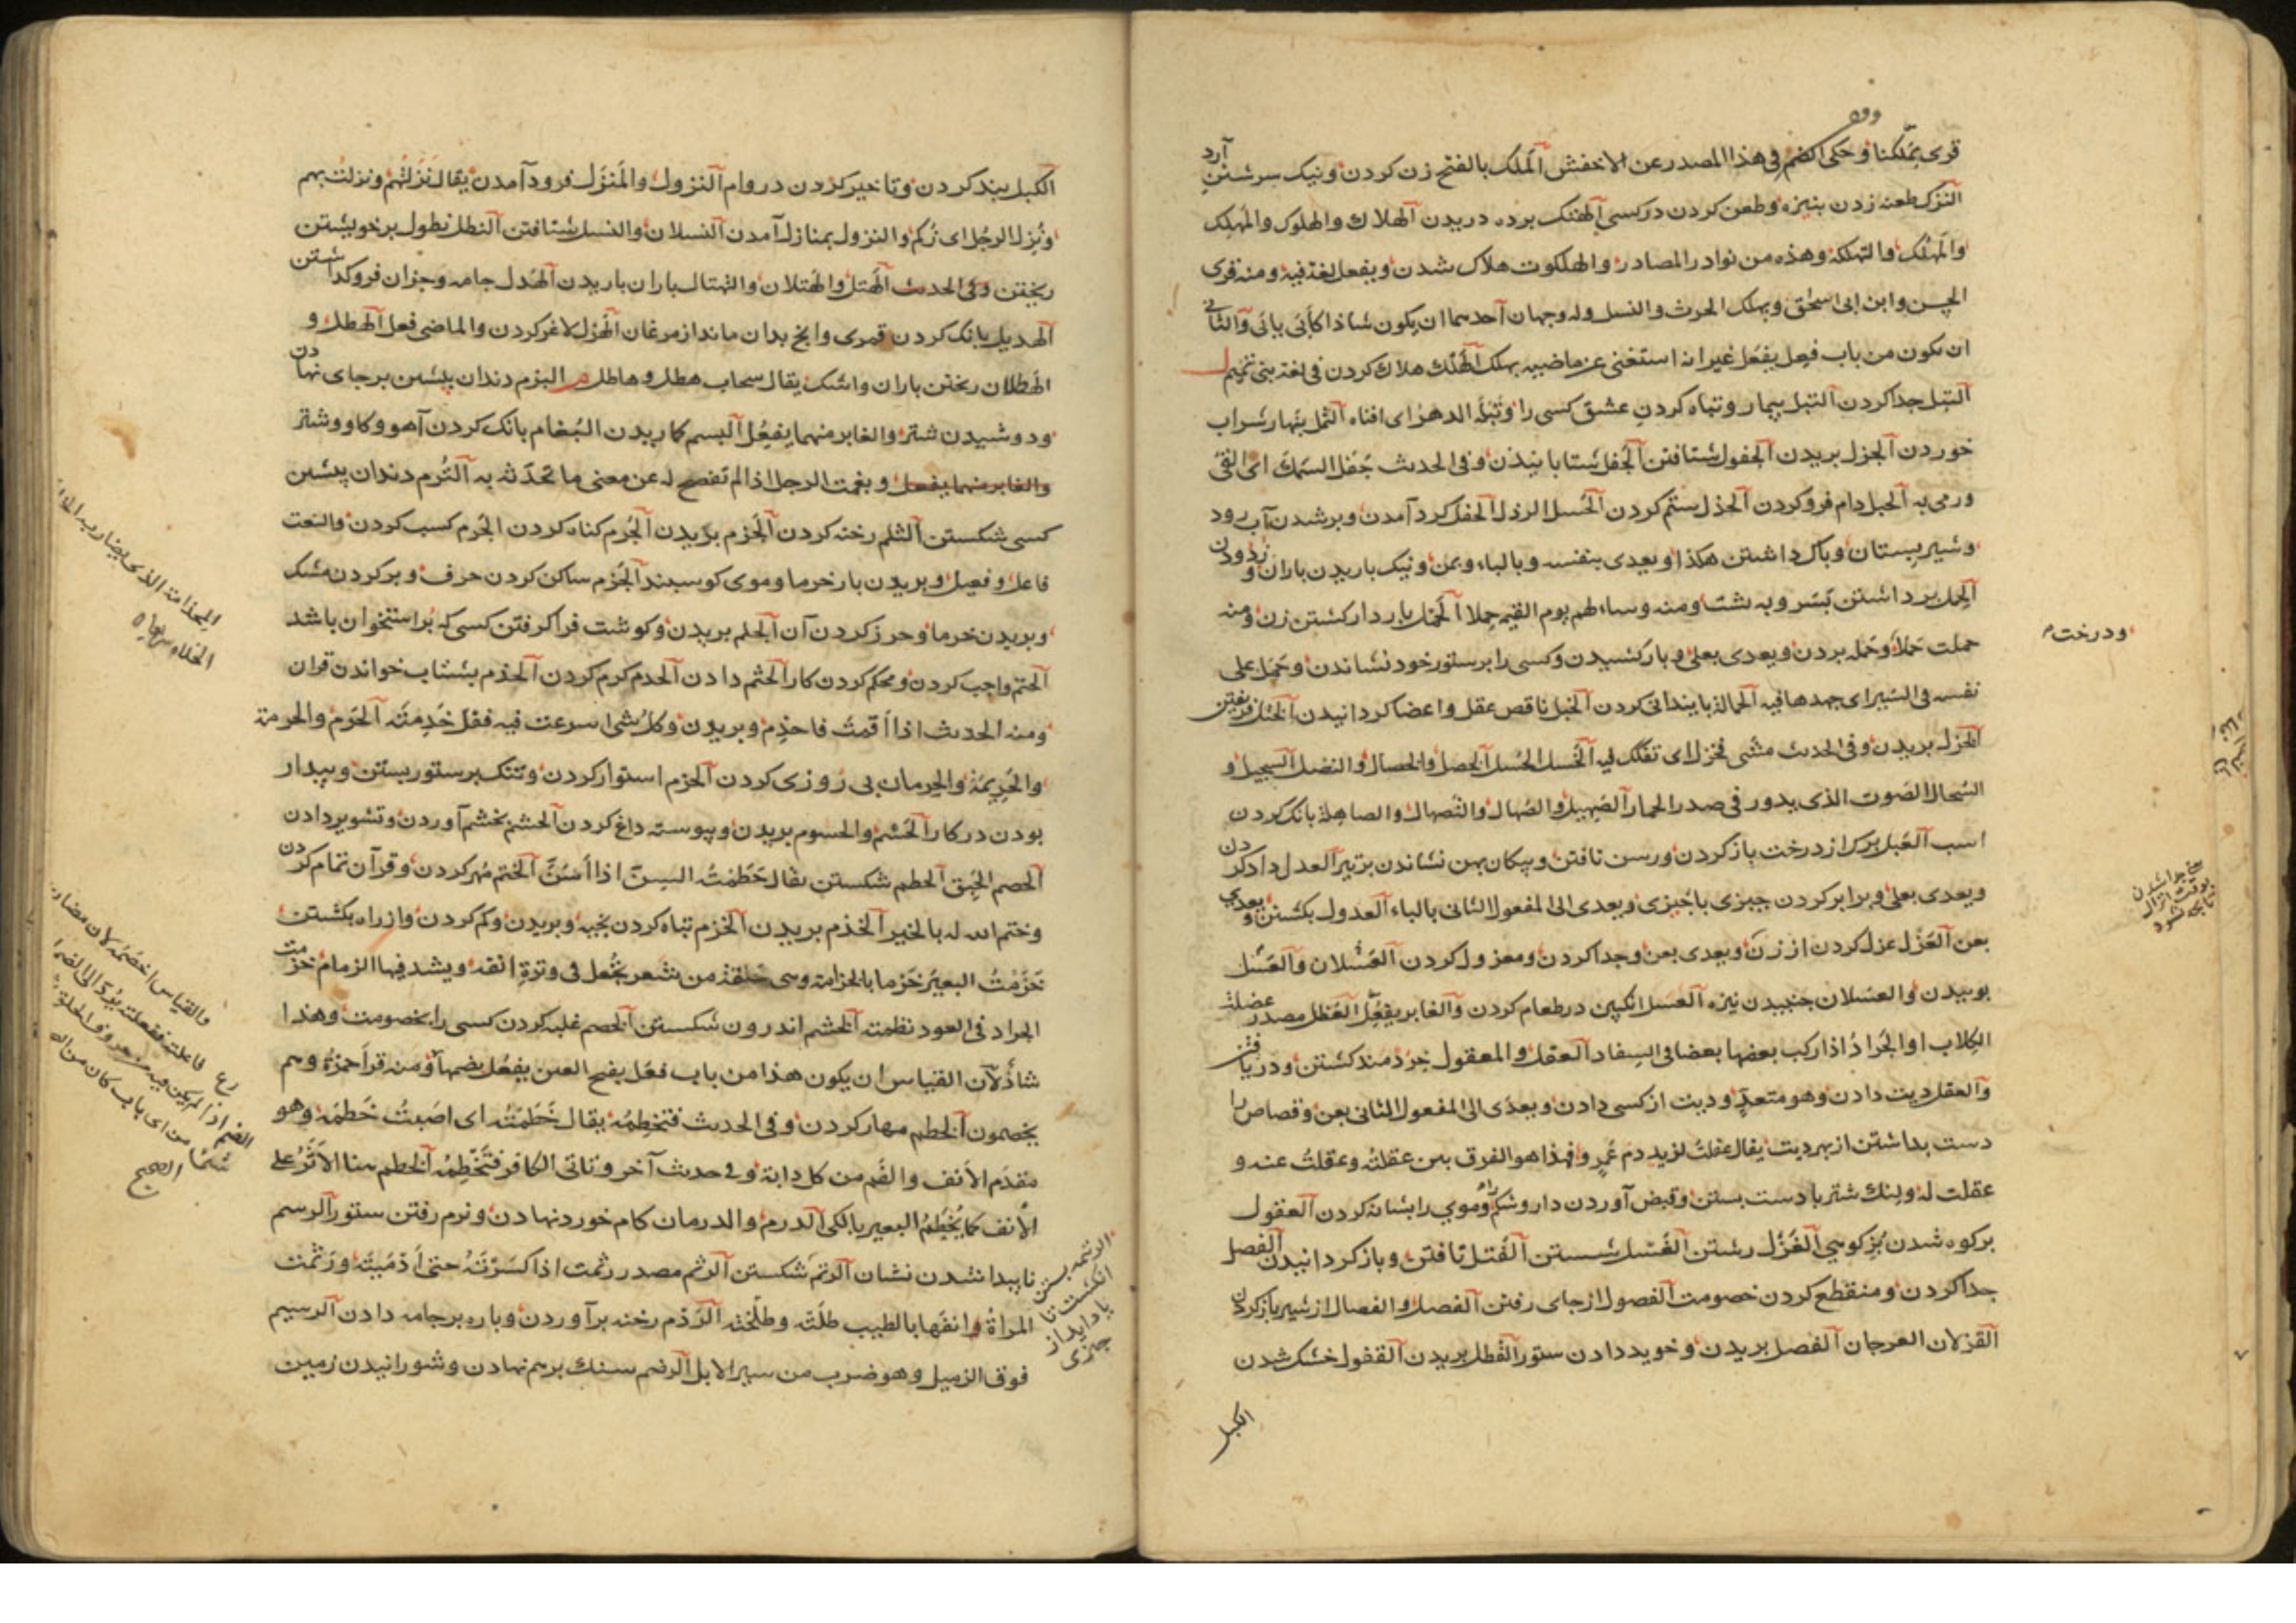 قرى بملكنا وحكى الضم فى هذا المصدر عن الاخفش الملك بالفتح زن كردن ونيك سرشتن آرد
النزك طعنه زدن بنيزه وطعن كردن در كسى الهتك برده دريدن الهلاك والهلوك والمهلك
والمهلك والتهلكة وهذه من نوادر المصادر والهلكوت هلاك شدن ويفعل لغة فيه ومنه قرى
الحسن وابن ابى اسحق ويهلك الحرث والنسل وله وجهان احدهما ان يكون شاذا كأبى يابى والثانى
ان يكون من باب فعل يفعل غير انه استغنى عن ماضيه بهلك الهلك هلاك كردن فى لغة بنى تميم ل
التبل جدا كردن التبل بيمار وتباه كردن عشق كسى را وتبله الدهر اى افناه الثمل بنهار شراب
خوردن الجزل بريدن الجفول شتافتن الجفل شتابانيدن وفى الحديث جفل السمك اى القى
ورمى به الحبل دام فرو كردن الحذل ستم كردن الحسل الرذل الحفل كرد آمدن وبر شدن آب رود
وشير بپستان وباك داشتن هكذا ويعدى بنفسه وبالباء وبمن ونيك باريدن باران وزدودن
الحمل برداشتن بسر وبه پشت ومنه وساء لهم يوم القيمة حملا الحمل باردار كشتن زن ومنه
ودرخت
حملت حملا وحمله بردن ويعدى بعلى وبار كشيدن وكسى را بر ستور خود نشاندن وحمل على
نفسه فى السير اى جهدها فيه الحمالة پايندانى كردن الخبل ناقص عقل واعضا كردانيدن الختل فريفتن
الخزل بريدن وفى الحديث مشى فخزل اى تفكك فيه الخسل الحسل الخصل والخصال والنضل السحيل و
السحال الصوت الذى يدور فى صدر الحمار الصهيل والصهال والتصهال والصاهلة بانك كردن
اسب العبل برك از درخت باز كردن ورسن تافتن وپيكان پهن نشاندن بر تير العدل داد كردن
ويعدى بعلى وبرابر كردن چيزى باچيزى ويعدى الى المفعول الثانى بالباء العدول بكشتن ويعدى
بعن العزل عزل كردن از زن ويعدى بعن وجدا كردن ومعزول كردن العسلان والعسل
پوييدن والعسلان جنبيدن نيزه العسل انكبين در طعام كردن والغابر يفعل العظل مصدر عضلت
الكلاب او الجراد اذا ركب بعضها بعضا فى السفاد العقل والمعقول خردمند كشتن ودريافتن
والعقل ديت دادن وهو متعد وديت از كسى دادن ويعدى الى المفعول الثانى بعن وقصاص را
دست بداشتن از بهر ديت يقال عقلت لزيد دم عمرو فهذا هو الفرق بين عقلته وعقلت عنه و
عقلت له وبنك شتر با دست بستن وقبض آوردن دارو شكم را وموى را بشانه كردن العقول
بر كوه شدن بز كوهى الغزل رشتن الغسل شستن الفتل تافتن وباز كردانيدن الفصل
جدا كردن ومنقطع كردن خصومت الفصول از جاى رفتن الفصل والفصال از شير باز كردن
القزلان العرجان القصل بريدن وخويد دادن ستور القطل بريدن القفول خشك شدن
الكبل
الكبل بند كردن وتاخير كردن در وام النزول والمنزل فرود آمدن يقال نزلتهم ونزلت بهم
ونزل الرجل اى زكم والنزول بمنازل آمدن النسلان والنسل شتافتن النطل نطول بر خويشتن
ريختن وفى الحديث الهتل والهتلان والتهتال باران باريدن الهدل جامه وجزان فرو كداشتن
الهديل بانك كردن قمرى وانچ بدان ماند از مرغان الهزل لاغر كردن والماضى فعل الهطل و
الهطلان ريختن باران واشك يقال سحاب هطل وهاطل م البزم دندان پيشين بر جاى نهادن
ودوشيدن شتر والغابر منهما يفعل البسم كماريدن البغام بانك كردن آهو وكاو وشتر
والغابر منهما يفعل وبغمت الرجل اذا لم تفصح له عن معنى ما تحدثه به الثرم دندان پيشين
كسى شكستن الثلم رخنه كردن الجزم بريدن الجرم كناه كردن الجرم كسب كردن والنعت
فاعل وفعيل وبريدن بار خرما وموى كوسپند الجزم ساكن كردن حرف وپر كردن مشك
وبريدن خرما وحرز كردن آن الجلم بريدن وكوشت فرا كرفتن كسى كه بر استخوان باشد
الحتم واجب كردن ومحكم كردن كار الحثم دادن الحدم كرم كردن الحذم بشتاب خواندن قران
ومنه الحديث اذا اقمت فاحذم وبريدن وكل شئ اسرعت فيه فقد حذمته الحرم والحرمة
والحريمة والحرمان بى روزى كردن الحزم استوار كردن وتنك بر ستور بستن وبيدار
بودن در كار الحسم والحسوم بريدن وپيوسته داغ كردن الحشم بخشم آوردن وتشوير دادن
الحصم الحبق الحطم شكستن يقال حطمته السن اذا اسن الختم مهر كردن وقرآن تمام كردن
وختم الله له بالخير الخذم بريدن الخرم تباه كردن بخيه وبريدن وكم كردن واز راه بكشتن
خزمت البعير خزما بالخزامة وهى حلقة من شعر تجعل فى وترة انفه ويشد فيها الزمام خزمت
الجراد فى العود نظمته الخشم اندرون شكستن الخصم غلبه كردن كسى را بخصومت وهذا
شاذ لان القياس ان يكون هذا من باب فعل بفتح العين يفعل بضمها ومنه قرأ حمزة وهم
يخصمون الخطم مهار كردن وفى الحديث فتخطمه يقال خطمته اى اصبت خطمه وهو
مقدم الانف والفم من كل دابة وفى حديث آخر وتاتى الكافر فتخطمه الخطم هنا الاثر على
الانف كما يخطم البعير بالكى الدرم والدرمان كام خورد نهادن ونرم رفتن ستور الرسم
ناپيدا شدن نشان الرتم شكستن الرثم مصدر رثمت اذا كسرته حتى ادميته ورثمت
المراة انفها بالطيب طلته وطلخته الردم رخنه برآوردن وپاره بر جامه دادن الرسيم
فوق الزميل وهو ضرب من سير الابل الرضم سنك بر هم نهادن وشورانيدن زمين
والقياس اخصمه لان مضارع فاعلته ففعلته يرد الى الضم
اذا لم يكن فيه من حروف الحلق
من اى باب كان من الصحيح
الرتمه بستن
انكشت تا
ياد آيد از
چيزى